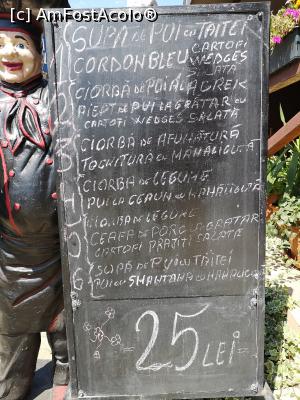 © www.AmFostAcolo.ro ®
SUPĂ DE PUI CU TAITEI
CARTOFI
CORDONBLEU WEDGES
SALATA
CIORBĂ DE PUI A LA GREK
PIEPT DE PUI LA GRĂTAR CU
CARTOFI WEDGES SALATA
3 CIORBĂ DE AFUMĂTURA
TOCHITURA CU MĂMĂLIGUTĂ
CIORBĂ DE LEGUME
PUI LA CEAUN CU MAMALIGUTA
CIORBĂ DE LEGUME
CEAFĂ DE PORC LA GRATAR
CARTOFI PRAJITI SALATA
6 SUPĂ DE PUI CU TAITEI
PUI CU SMANTANA CU MAMALIGA
-25 LEI-